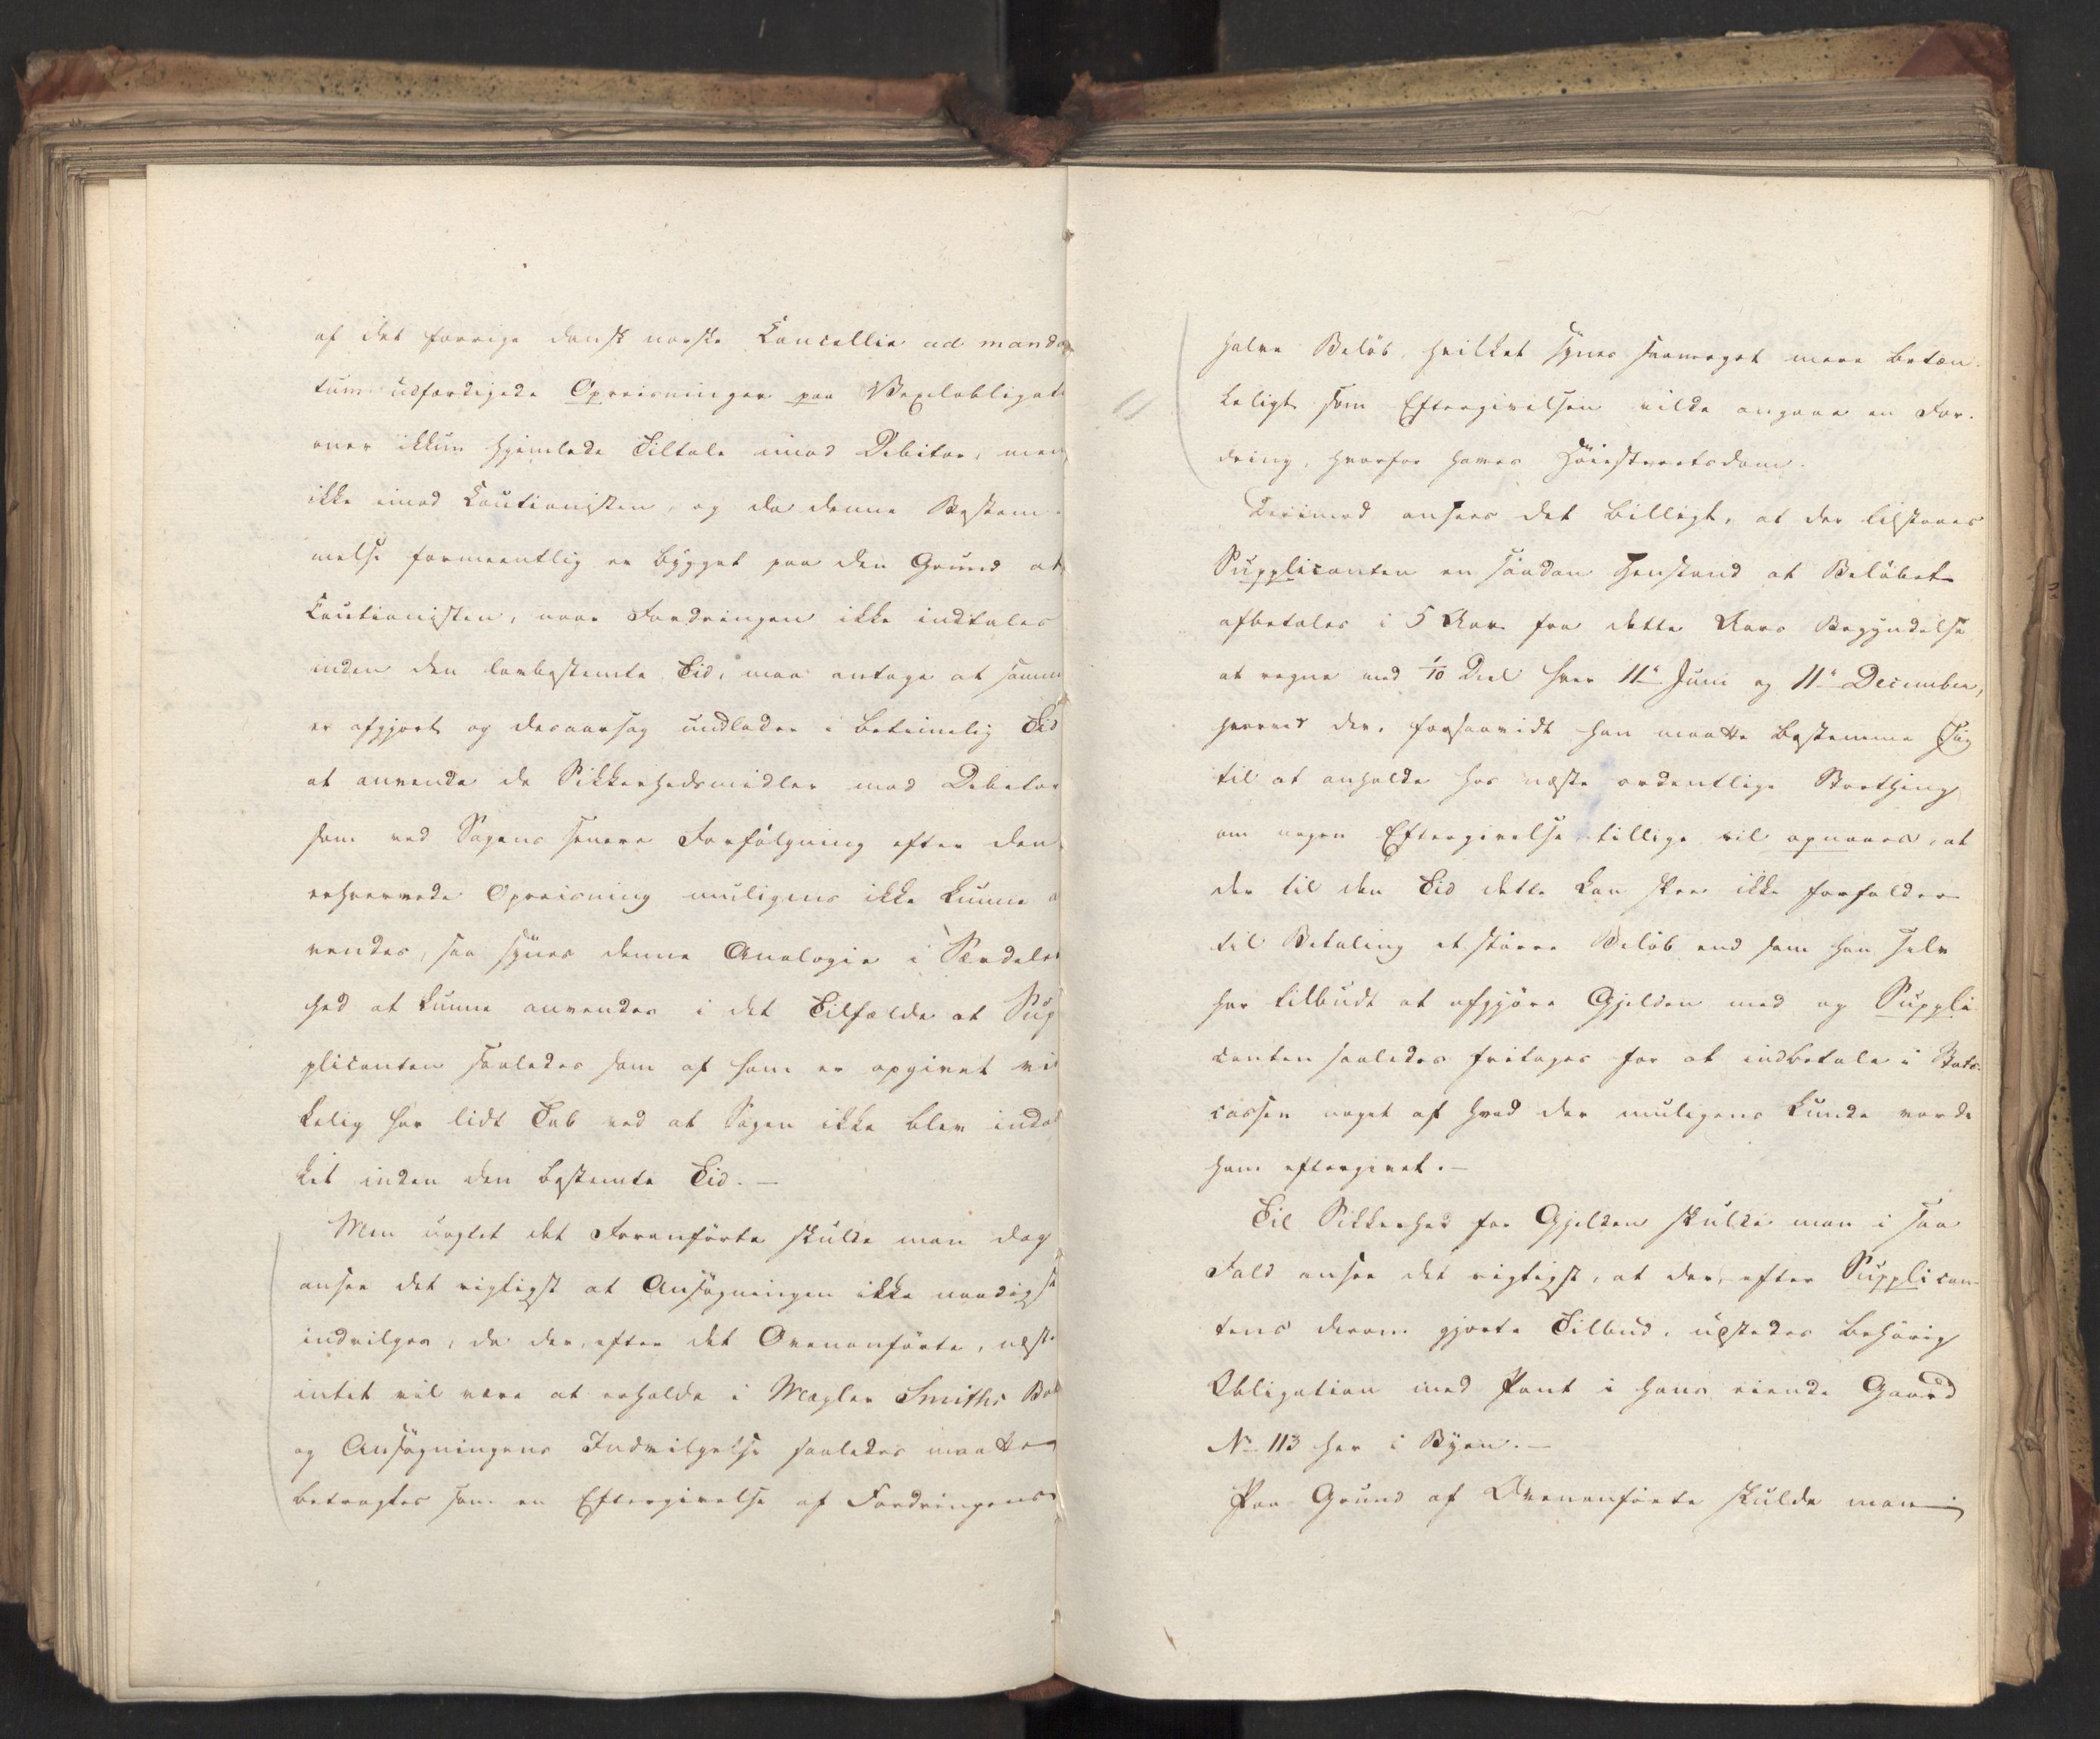 af det forrige dansk norske Cancellie ad manda
tum udfærdigede Opreisninger paa Vexelobligati
oner ikkun hjemlede Tiltale imod Debitor, men
ikke imod Cautionisten, og da denne Bestem-
melse formeentlig er bygget paa den Grund at
Cautionisten, naar Fordringen ikke indtales
inden den lovbestemte Tid, maa antage at samme
er afgjort og desaarsag undlader i betimelig Tid
at anvende de Sikkerhedsmidler mod Debitor
som ved Sagens senere Forfølgning efter den
erhvervede Opreisning muligens ikke kunne a
vendes, saa synes denne Analogie i Særdeles
hed at kunne anvendes i det Tilfælde at Sup
plicanten saaledes som af ham er opgivet vir
kelig har lidt Tab ved at Sagen ikke blev indan
ket inden den bestemte Tid. —
Men uagtet det Foranførte skulde man dog
ansee det rigtigst at Ansøgningen ikke naadigst
indvilges, da der, efter det Ovenanførte, næsten
intet vil være at erholde i Mægler Smiths Boe
og Ansøgningens Indvilgelse saaledes maatte
betragtes som en Eftergivelse af Fordringens
halve Beløb, hvilket synes saameget mere betæn-
keligt som Eftergivelsen vilde angaae en For-
dring, hvorfor haves Høiesteretsdom.
Derimod ansees det billigt, at der tilstaaes
Supplicanten en saadan Henstand at Beløbet
afbetales i 5 Aar fra dette Aars Begyndelse
at regne med 1/10 Deel hver 11te Juni og 11te December,
hvorved der, forsaavidt han maatte bestemme sig
til at anholde hos næste ordentlige Storthing
om nogen Eftergivelse tillige vil opnaaes, at
der til den Tid dette kan skee ikke forfalder
til Betaling et større Beløb end som han selv
har tilbudt at afgjøre Gjelden med og Suppli
canten saaledes fritages for at indbetale i Stats-
cassen noget af hvad der muligens kunde vorde
ham eftergivet. —
Til Sikkerhed for Gjelden skulde man i saa
Fald ansee det rigtigst, at der, efter Supplican-
tens derom gjorte Tilbud, udstedes behørig
Obligation med Pant i hans eiende Gaard
No 113 her i Byen. —
Paa Grund af Ovenanførte skulde man